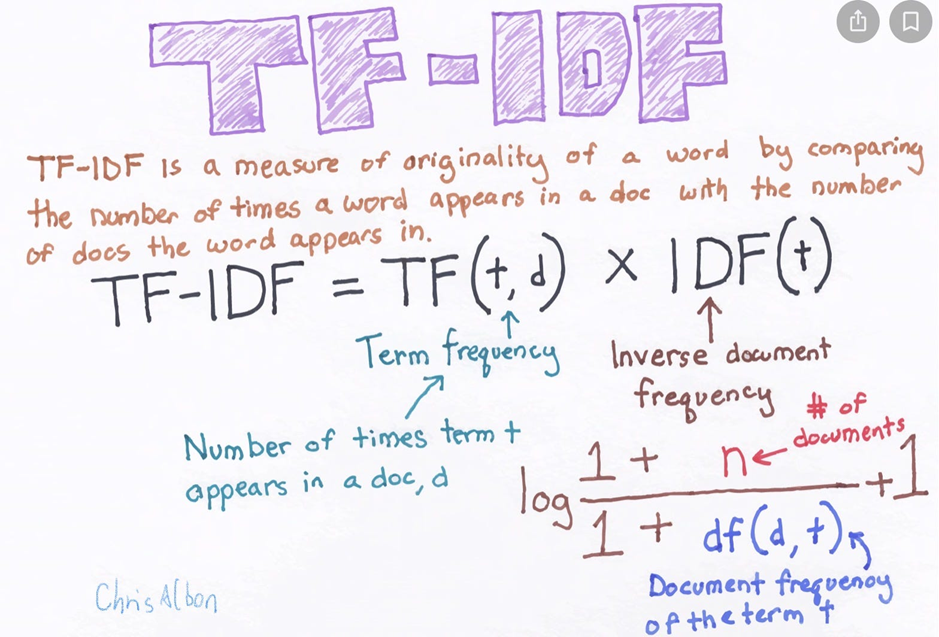 TF-IDF
TF-IDF IS a measure of originality of a word by comparing
the number of times a word appears in a doc with the number
of docs the word appears in.
TF-IDF = TF(t, d) × IDF(t)
Term frequency
Inverse document
frequency
Number of times term t
appears in a doc, d
# of
documents
log (1 + n) / (1 + df(d, t)) + 1
Document frequency
of the term t
Chris Albon